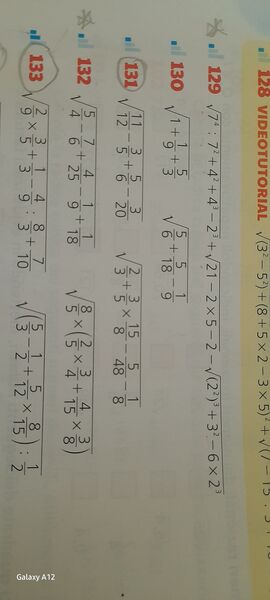 128 VIDEOTUTORIAL √(3² − 5²) + (8 + 5 × 2 − 3 × 5)² + √(7 − 15 : 5 +
129 √7⁴ : 7² + 4² + 4³ − 2³ + √21 − 2 × 5 − 2 − √(2²)³ + 3² − 6 × 2³
130 √1 + 1/9 + 5/3 √5/6 + 5/18 − 1/9
131 √11/12 − 3/5 + 5/6 − 3/20 √2/3 + 3/5 × 15/8 − 5/48 − 1/8
132 √5/4 − 7/6 + 4/25 − 1/9 + 1/18 √8/5 × (2/5 × 3/4 + 4/15 × 3/8)
133 √2/9 × 3/5 + 1/3 − 4/9 : 8/3 + 7/10 √(5/3 − 1/2 + 5/12 × 8/15) : 1/2
Galaxy A12